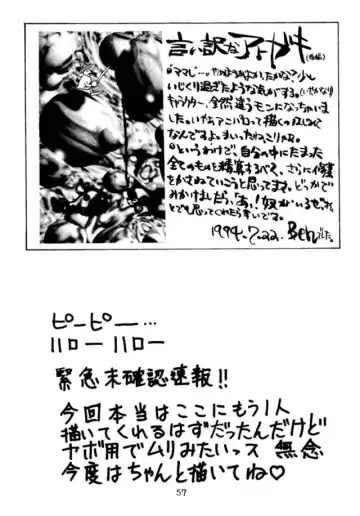 言い訳なアトガキ(後編)
いじくり過ぎたような気がする。(いやかなり)
キャラクター、全然違うモンになっちゃいま
した。いやあアニパロって描くの
なんですよ。まいったねこりゃ。
というわけで、自分の中にたまった
全てのものを精算するべく、さらに修業
をかさねていこうと思ってます。どっかで
みかけましたら、「あ!奴がいるぜ」
とでも思ってくれたら幸いです。
1994.7.22. Benでした。
ピーピー…
ハロー ハロー
緊急未確認速報!!
今回本当はここにもう1人
描いてくれるはずだったんだけど
ヤボ用でムリみたいっス 無念
今度はちゃんと描いてね♡
57